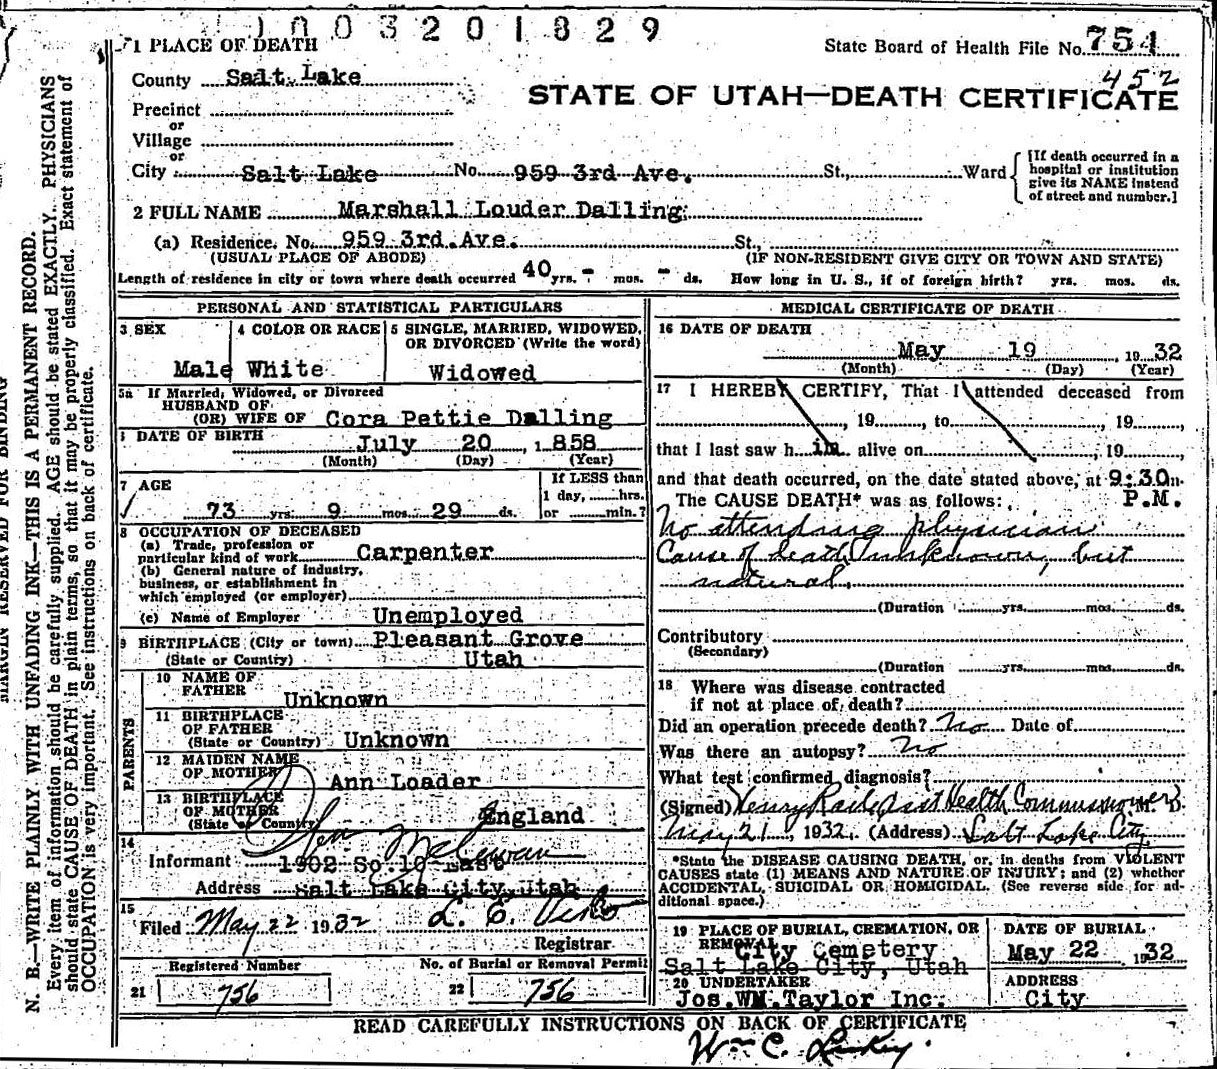 1003201829
1 PLACE OF DEATH
State Board of Health File No. 754
452
County Salt Lake
STATE OF UTAH—DEATH CERTIFICATE
Precinct
or
Village
or
City Salt Lake No. 959 3rd Ave. St., Ward
[If death occurred in a hospital or institution give its NAME instead of street and number.]
2 FULL NAME Marshall Louder Dalling
(a) Residence. No. 959 3rd. Ave. St.,
(USUAL PLACE OF ABODE) (IF NON-RESIDENT GIVE CITY OR TOWN AND STATE)
Length of residence in city or town where death occurred 40 yrs. - mos. - ds. How long in U. S., if of foreign birth? yrs. mos. ds.
PERSONAL AND STATISTICAL PARTICULARS
3 SEX
Male
4 COLOR OR RACE
White
5 SINGLE, MARRIED, WIDOWED, OR DIVORCED (Write the word)
Widowed
5a If Married, Widowed, or Divorced
HUSBAND OF
(OR) WIFE OF Cora Pettie Dalling
DATE OF BIRTH July 20, 1858
(Month) (Day) (Year)
7 AGE
73 yrs. 9 mos. 29 ds.
If LESS than
1 day, hrs.
or min.?
8 OCCUPATION OF DECEASED
(a) Trade, profession or
particular kind of work Carpenter
(b) General nature of industry,
business, or establishment in
which employed (or employer)
(c) Name of Employer Unemployed
9 BIRTHPLACE (City or town) Pleasant Grove
(State or Country) Utah
PARENTS
10 NAME OF
FATHER Unknown
11 BIRTHPLACE
OF FATHER
(State or Country) Unknown
12 MAIDEN NAME
OF MOTHER Ann Loader
13 BIRTHPLACE
OF MOTHER
(State or Country) England
14
Informant McEwan
1902 So. 10 East
Address Salt Lake City, Utah
15
Filed May 22 1932 L. E.
Registrar
Registered Number
21 756
No. of Burial or Removal Permit
22 756
MEDICAL CERTIFICATE OF DEATH
16 DATE OF DEATH
May 19, 1932
(Month) (Day) (Year)
17 I HEREBY CERTIFY, That I attended deceased from
, 19 , to , 19 ,
that I last saw h im alive on , 19 ,
and that death occurred, on the date stated above, at 9:30 m.
The CAUSE DEATH* was as follows: P.M.
No attending physician
Cause of death unknown, but
natural.
(Duration yrs. mos. ds.
Contributory
(Secondary)
(Duration yrs. mos. ds.
18 Where was disease contracted
if not at place of death?
Did an operation precede death? No Date of
Was there an autopsy? No
What test confirmed diagnosis?
(Signed) Henry Raile Asst Health Commissioner M. D.
May 21, 1932. (Address) Salt Lake City
*State the DISEASE CAUSING DEATH, or, in deaths from VIOLENT
CAUSES state (1) MEANS AND NATURE OF INJURY; and (2) whether
ACCIDENTAL, SUICIDAL OR HOMICIDAL. (See reverse side for ad-
ditional space.)
19 PLACE OF BURIAL, CREMATION, OR
REMOVAL City Cemetery
Salt Lake City, Utah
DATE OF BURIAL
May 22 1932
20 UNDERTAKER
Jos. WM. Taylor Inc.
ADDRESS
City
READ CAREFULLY INSTRUCTIONS ON BACK OF CERTIFICATE
Wm C.
MARGIN RESERVED FOR BINDING
N. B.—WRITE PLAINLY WITH UNFADING INK—THIS IS A PERMANENT RECORD.
Every item of information should be carefully supplied. AGE should be stated EXACTLY. PHYSICIANS
should state CAUSE OF DEATH in plain terms, so that it may be properly classified. Exact statement of
OCCUPATION is very important. See instructions on back of certificate.